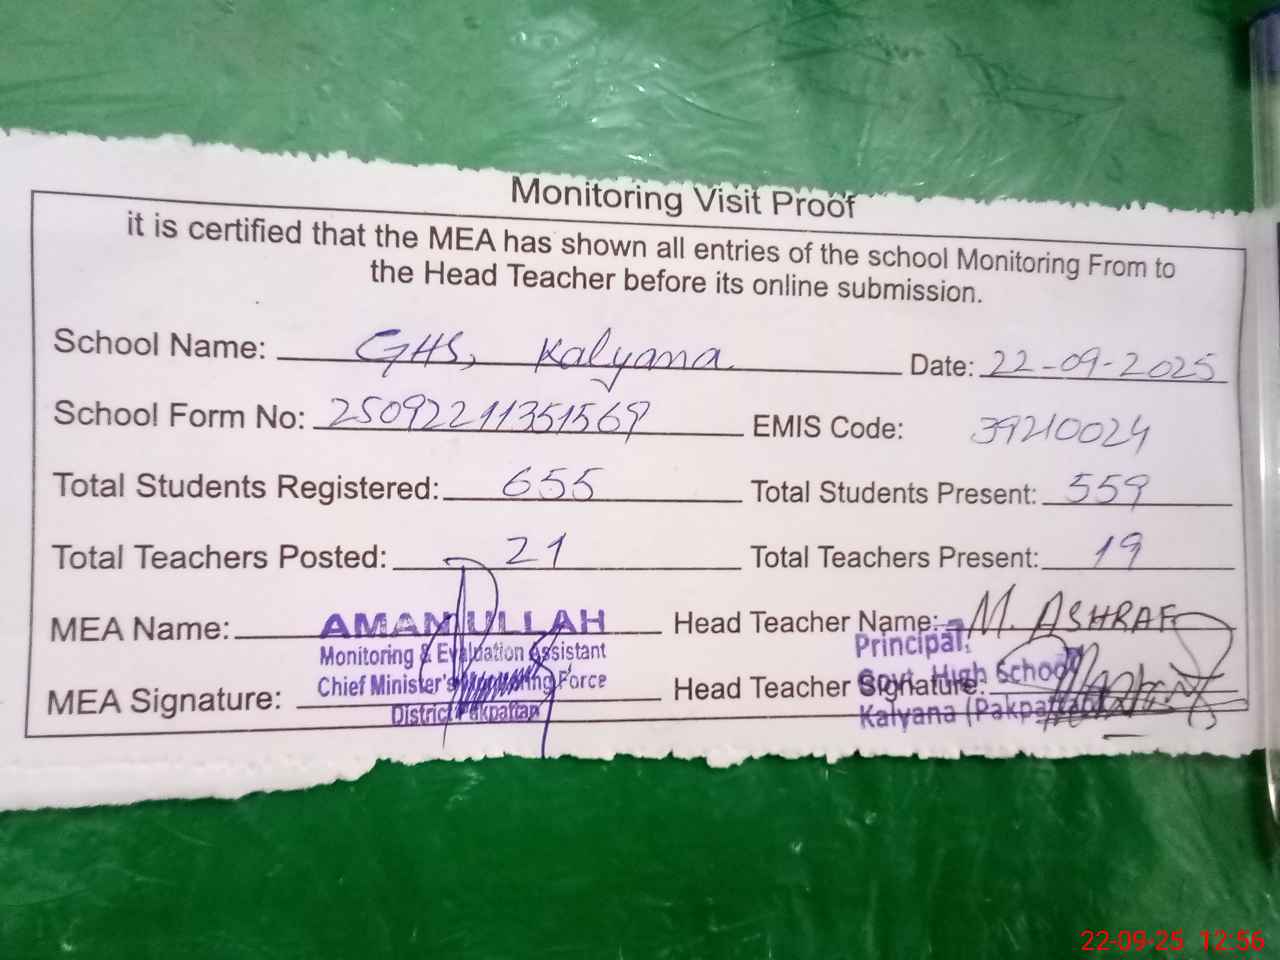 Monitoring Visit Proof
it is certified that the MEA has shown all entries of the school Monitoring From to
the Head Teacher before its online submission.
School Name: GHS, Kalyana. Date: 22-09-2025
School Form No: 25092211351569 EMIS Code: 39210024
Total Students Registered: 655 Total Students Present: 559
Total Teachers Posted: 21 Total Teachers Present: 19
MEA Name: AMANULLAH Head Teacher Name: M. ASHRAF
Monitoring & Evaluation Assistant Principal,
Chief Minister's Monitoring Force Govt. High School
MEA Signature: Head Teacher Signature:
District Pakpattan Kalyana (Pakpattan)
22-09-25 12:56